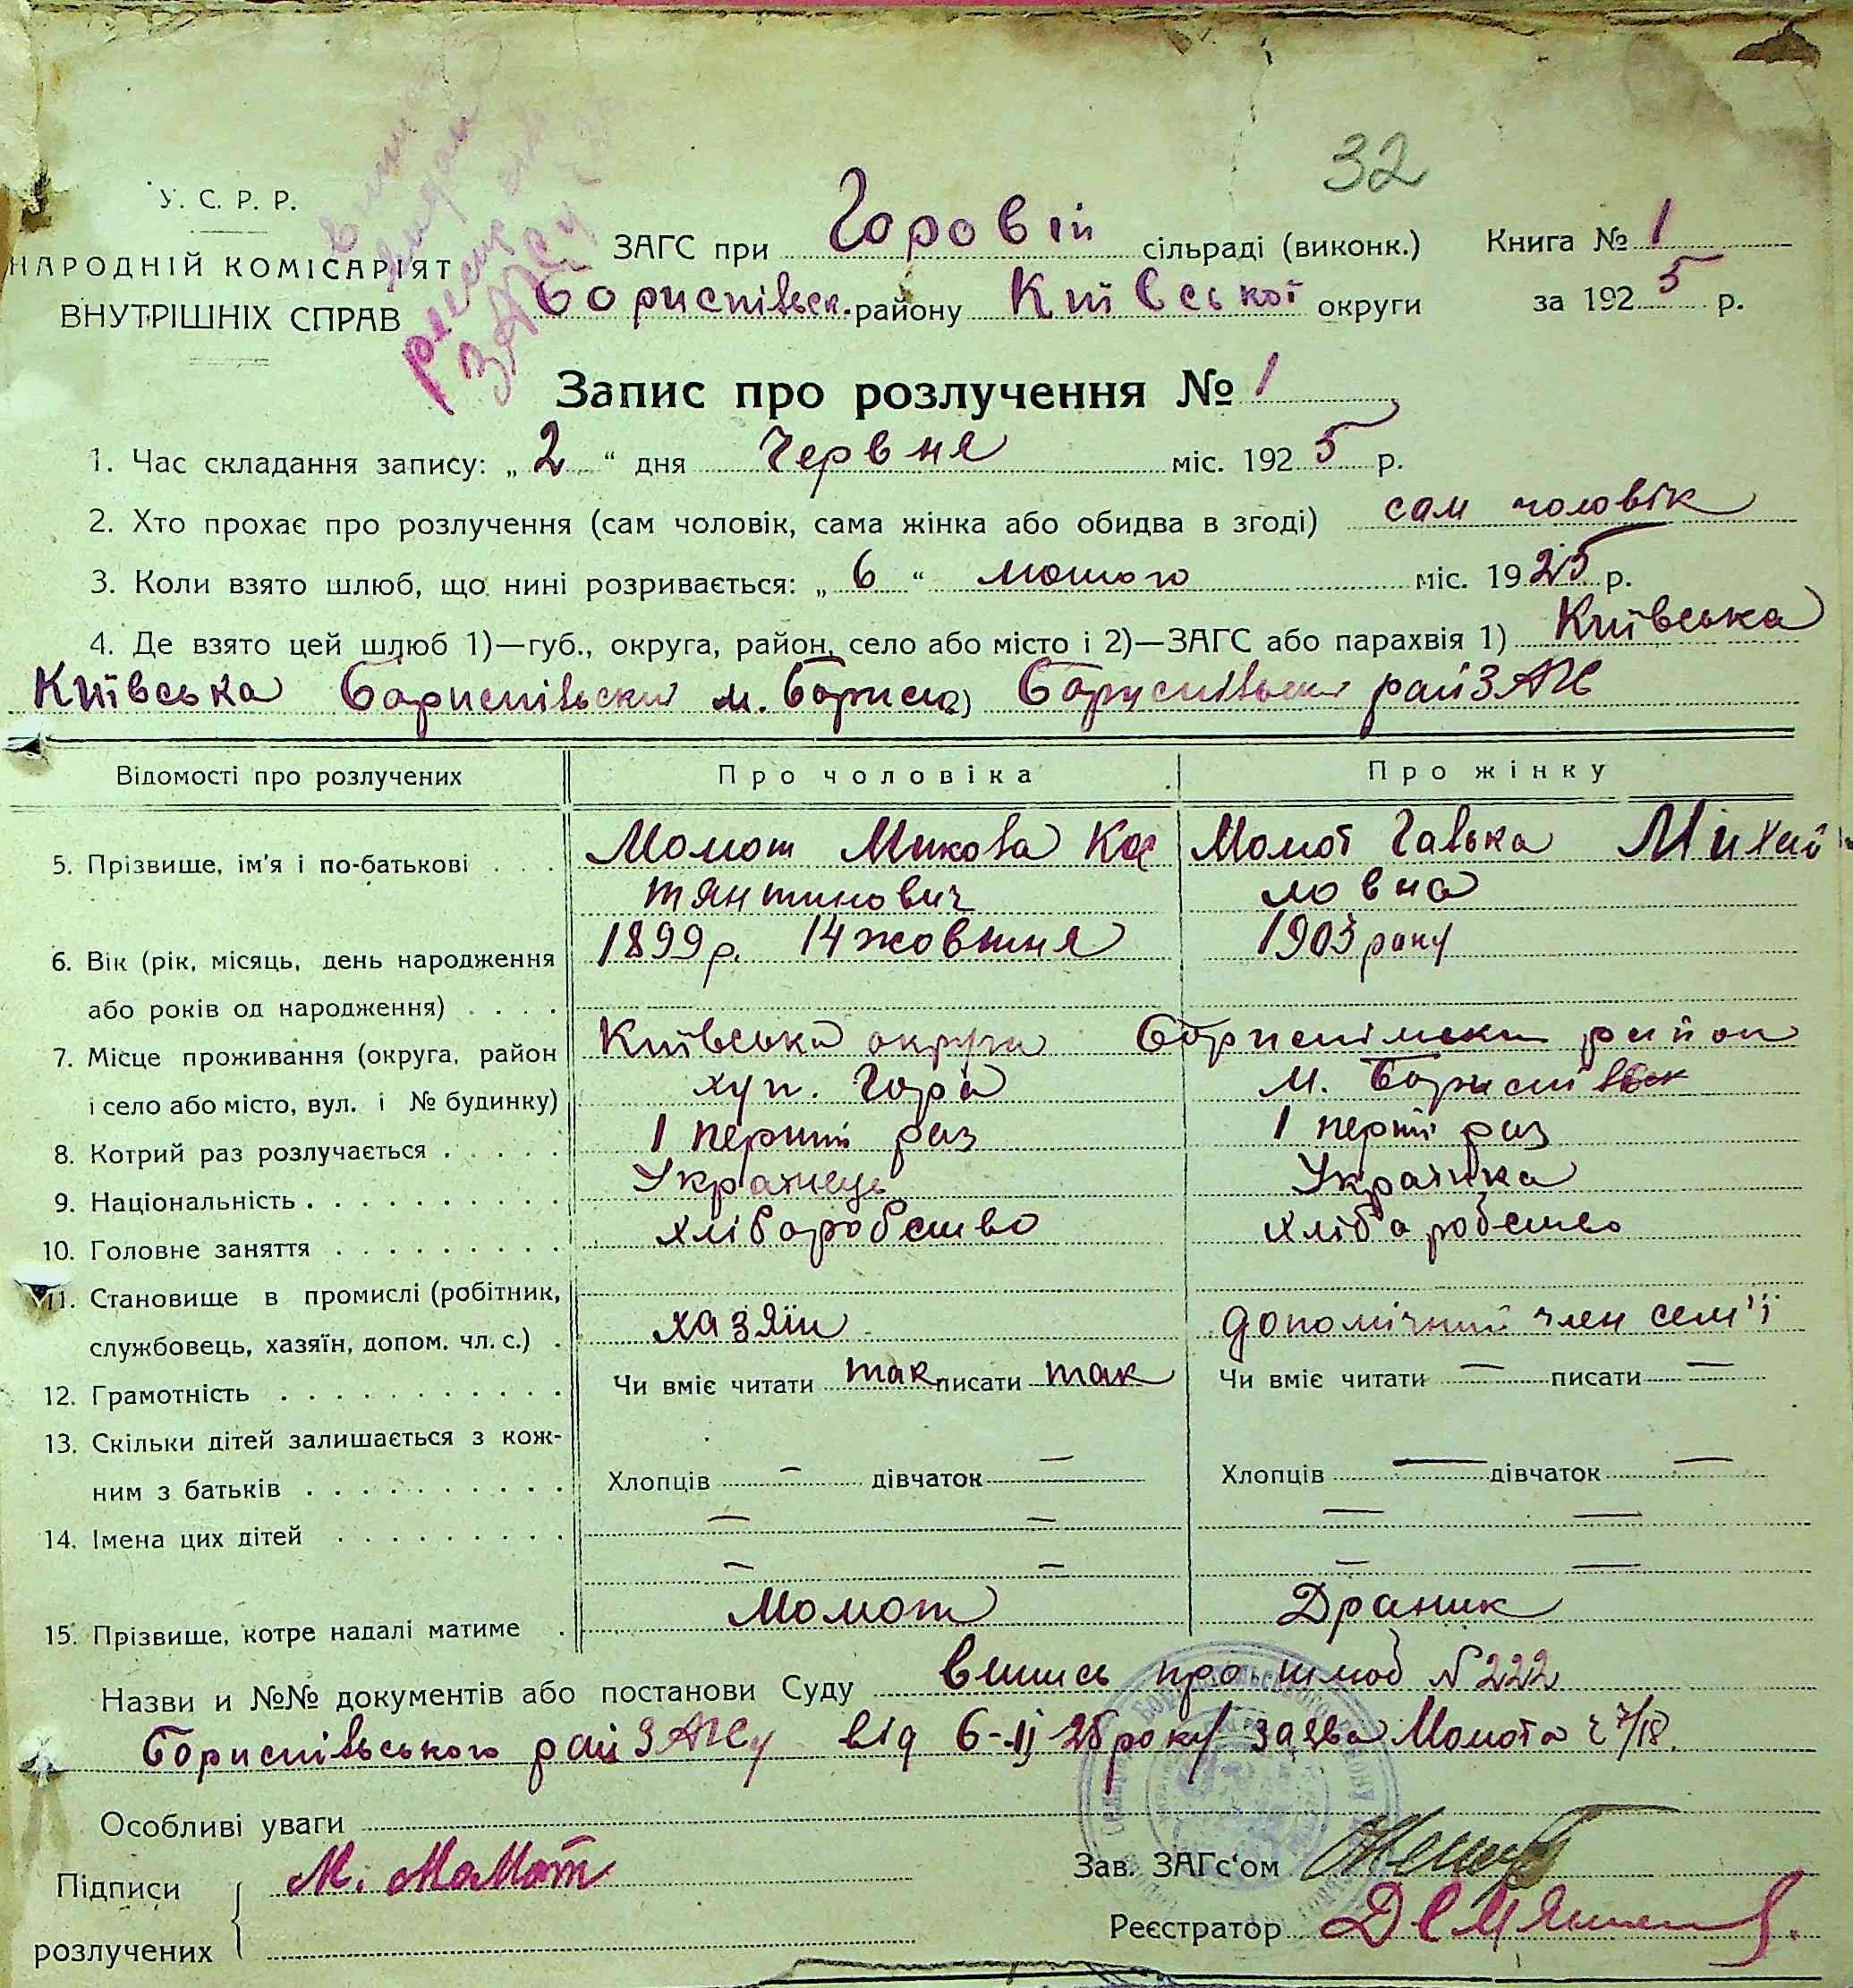 32
У. С. Р. Р.
НАРОДНІЙ КОМІСАРІЯТ
ВНУТРІШНІХ СПРАВ
ЗАГС при Горовій сільраді (виконк.) Книга № 1
Бориспівськ. району Київської округи за 1925 р.
Запис про розлучення № 1
1. Час складання запису: „2“ дня Червня міс. 1925 р.
2. Хто прохає про розлучення (сам чоловік, сама жінка або обидва в згоді) сам чоловік
3. Коли взято шлюб, що нині розривається: „6“ лютого міс. 1925 р.
4. Де взято цей шлюб 1)—губ., округа, район, село або місто і 2)—ЗАГС або парахвія 1) Київська
Київська Бориспівський м. Бориспіль Бориспівський райЗАГС
Відомості про розлучених Про чоловіка Про жінку
5. Прізвище, ім'я і по-батькові . . . Момот Микола Кос Момот Гапка Михай
тянтинович ловна
6. Вік (рік, місяць, день народження 1899 р. 14 жовтня 1903 року
або років од народження) . . . .
7. Місце проживання (округа, район Київська округа Бориспільський район
і село або місто, вул. і № будинку) хут. Гора м. Бориспіль
8. Котрий раз розлучається . . . . . 1 перший раз 1 перший раз
9. Національність . . . . . . . . . . Українець Українка
10. Головне заняття . . . . . . . . . хліборобство хліборобство
11. Становище в промислі (робітник,
службовець, хазяїн, допом. чл. с.) . хазяїн допомічний член сем'ї
12. Грамотність . . . . . . . . . . . Чи вміє читати так писати так Чи вміє читати — писати —
13. Скільки дітей залишається з кож-
ним з батьків . . . . . . . . . . Хлопців — дівчаток — Хлопців — дівчаток —
14. Імена цих дітей . . . . . . . . . — — — —
— — — —
15. Прізвище, котре надалі матиме . Момот Драник
Назви и №№ документів або постанови Суду випись про шлюб № 222
Бориспівського райЗАГСу від 6-II 25 року заява Момота ч 7/18.
Особливі уваги
Підписи М. МаМот Зав. ЗАГс'ом
розлучених Реєстратор